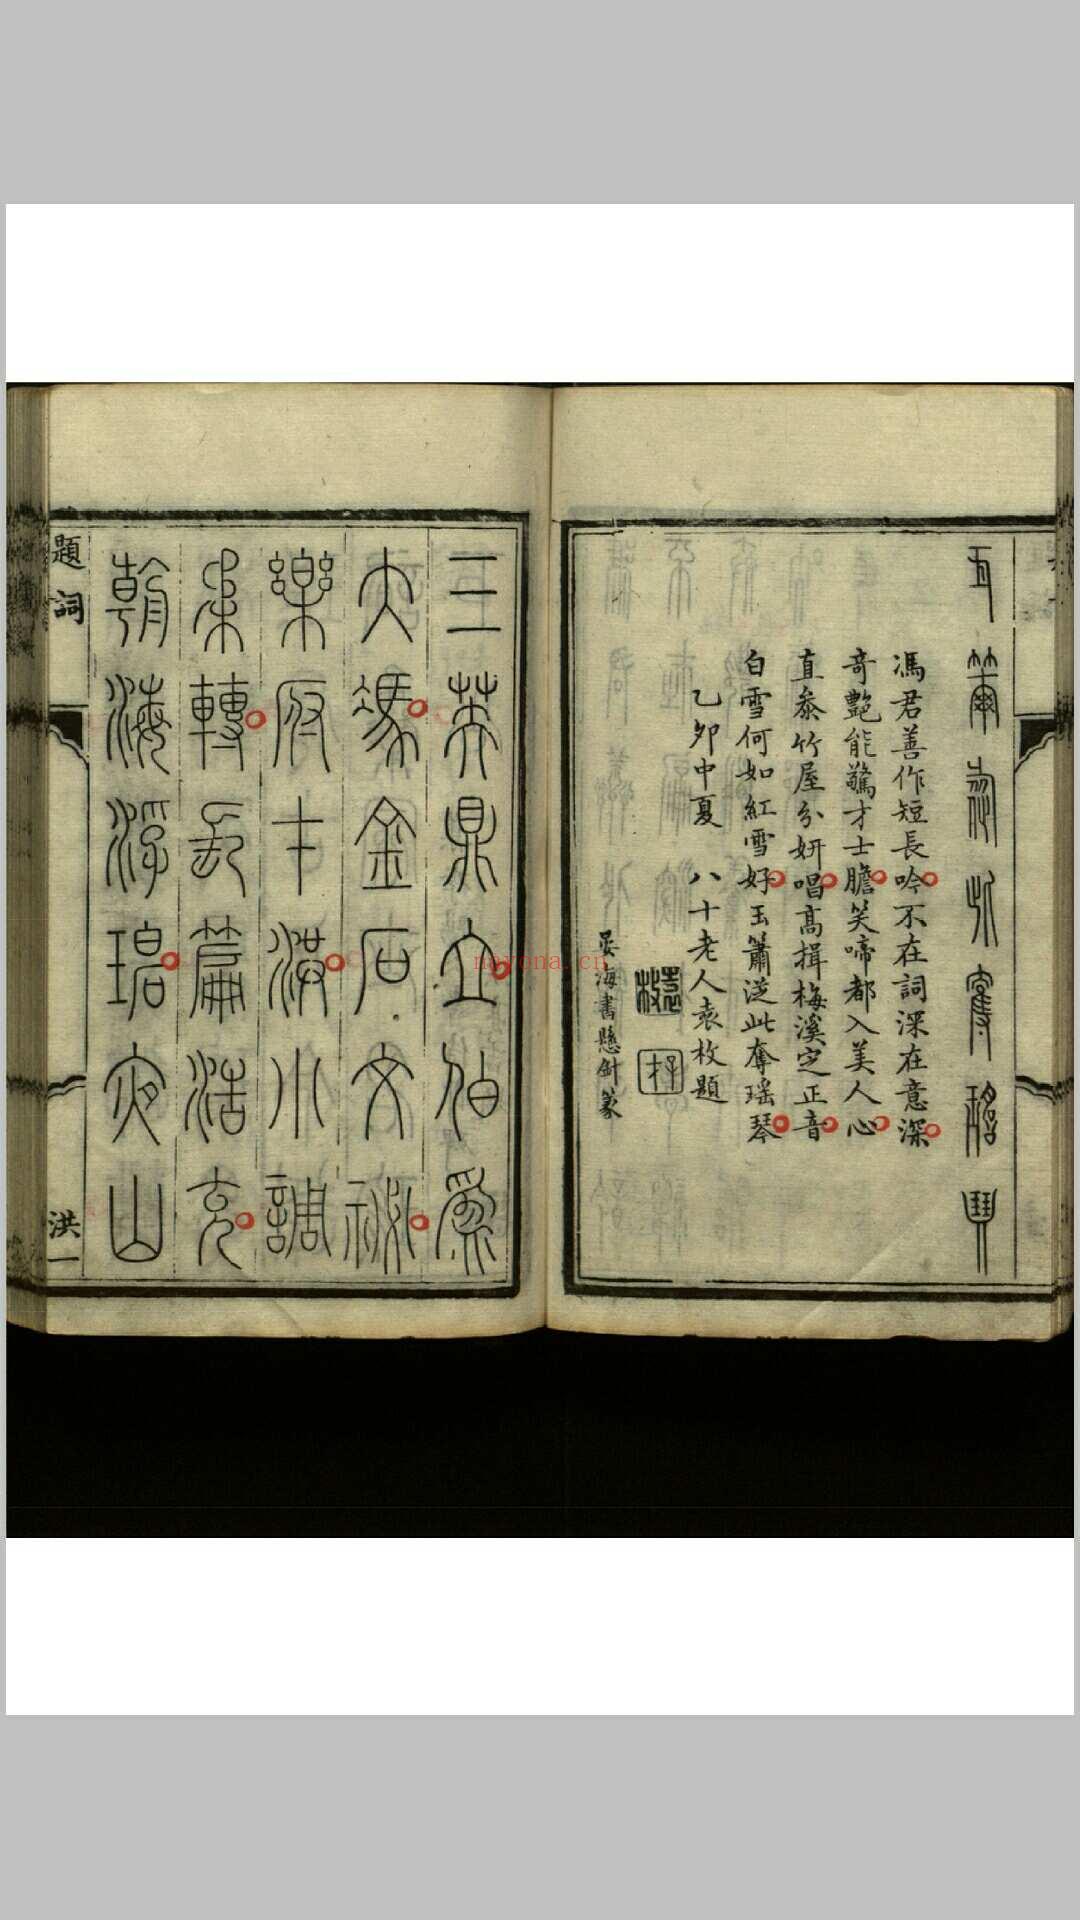 馮君善作短長吟不在詞深在意深
奇艷能驚才士膽笑啼都入美人心
直叅竹屋分妍唱高揖梅溪定正音
白雪何如紅雪好玉簫從此奪瑶琴
乙夘中夏 八十老人袁枚題
袁枚
子才
晏海書懸針篆
三英鼎立伯爲
大馮金石文
樂府才洪小調
柔轉長篇浩
朝海浮碧夜山
題詞
洪一
nayona.cn